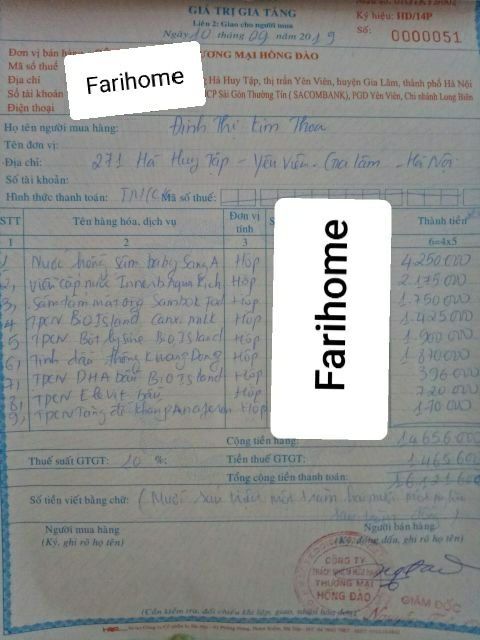 GIÁ TRỊ GIA TĂNG
Liên 2: Giao cho người mua
Ký hiệu: HD/14P
Ngày 10 tháng 09 năm 2019
Số: 0000051
Đơn vị bán hàng
ƯƠNG MẠI HỒNG ĐÀO
Mã số thuế
Farihome
Địa chỉ
Hà Huy Tập, thị trấn Yên Viên, huyện Gia Lâm, thành phố Hà Nội
Số tài khoản
CP Sài Gòn Thường Tín ( SACOMBANK), PGD Yên Viên, Chi nhánh Long Biên
Điện thoại
Họ tên người mua hàng: Đinh Thị Kim Thoa
Tên đơn vị:
Địa chỉ: 271 Hà Huy Tập - Yên Viên - Gia Lâm - Hà Nội
Số tài khoản:
Hình thức thanh toán: TM/CK Mã số thuế:
STT Tên hàng hóa, dịch vụ Đơn vị tính Thành tiền
1 2 3 6=4x5
1, Nước hồng sâm baby Sang A Hộp 4250000
2, Viên cấp nước Innerb Aqua Rich Hộp 2.175000
3, Hộp 1.750000
4 TPCN BIO Island milk Hộp 1.425000
5 TPCN Bột lysine Bio Island Hộp 1.900000
6, Tinh dầu thông Kwang Dong Hộp 1 870000
7, TPCN DHA bầu BIO Island Hộp 396000
8, TPCN Elevit bầu Hộp 720000
9, TPCN Tăng đề kháng Hộp 170000
Cộng tiền hàng: 14656000
Thuế suất GTGT: 10 %: Tiền thuế GTGT: 1.465600
Tổng cộng tiền thanh toán: 16121600
Số tiền viết bằng chữ: (Mười sáu triệu một trăm hai mươi mốt nghìn
sáu trăm đồng)
Người mua hàng
(Ký, ghi rõ họ tên)
Người bán hàng
(Ký, đóng dấu, ghi rõ họ tên)
Farihome
CÔNG TY
THƯƠNG MẠI
HỒNG ĐÀO
GIÁM ĐỐC
(Cần kiểm tra, đối chiếu khi lập, giao, nhận hóa đơn)